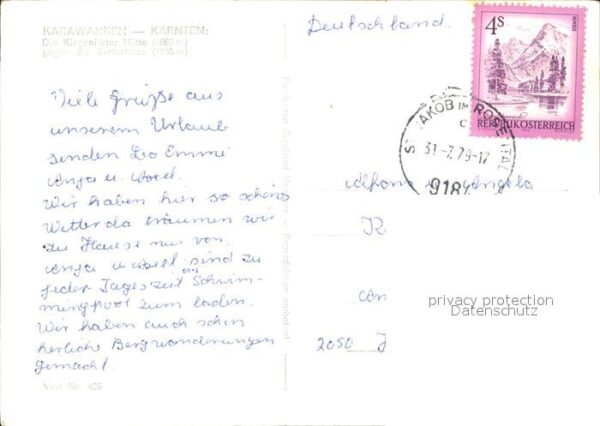 KARAWANKEN — KÄRNTEN:
Die Klagenfurter Hütte (1663 m)
gegen die
Viele Grüße aus
unserem Urlaub
senden Leo Emmi
Anja u.
Wir haben hier so schöns
Wetter da träumen wir
zu Hause nur von.
Anja u. sind zu
jeder Tageszeit im Schwim-
mingpool zum baden.
Wir haben auch schon
herliche Bergwanderungen
gemacht.
Verl.-Nr. 423
Deutschland.
4S
REPUBLIK ÖSTERREICH
ST. JAKOB IM ROSENTAL
31.-7.79-17
918
Alfons Angela
R
privacy protection
Datenschutz
2050